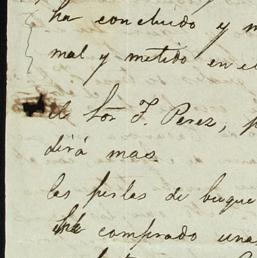 ha concluido y m
mal y metido en el
el Sor J. Perez, p
dirá mas.
las perlas de buque
ha comprado una